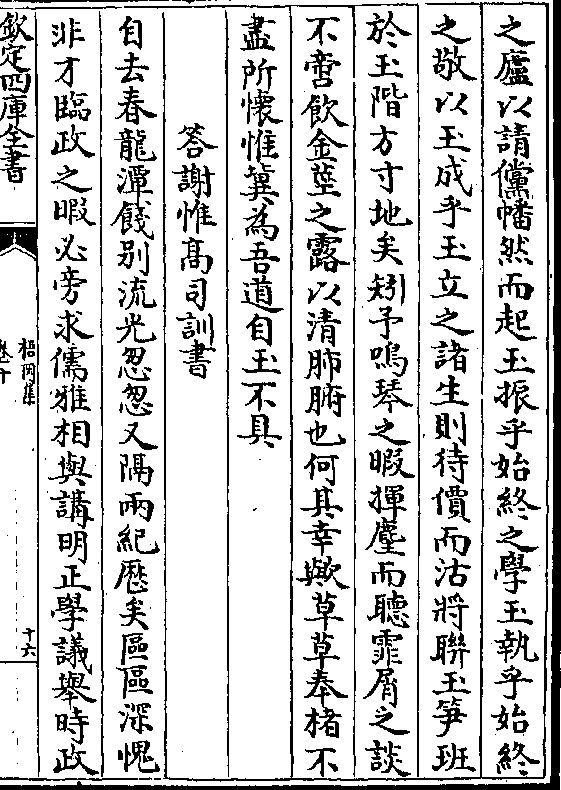 之廬以請儻幡然而起玉振乎始終之學玉執乎始終
之敬以玉成乎玉立之諸生則待價而沽將聯玉笋班
於玉階方寸地矣矧予鳴琴之暇揮麈而聽霏屑之談
不啻飲金莖之露以清肺腑也何其幸歟草草奉楮不
盡所懷惟冀為吾道自玉不具
答謝惟髙司訓書
自去春龍潭餞别流光忽忽又隔兩紀厯矣區區深愧
非才臨政之暇必旁求儒雅相與講明正學議舉時政
欽定四庫全書
梧岡集
卷十
十六